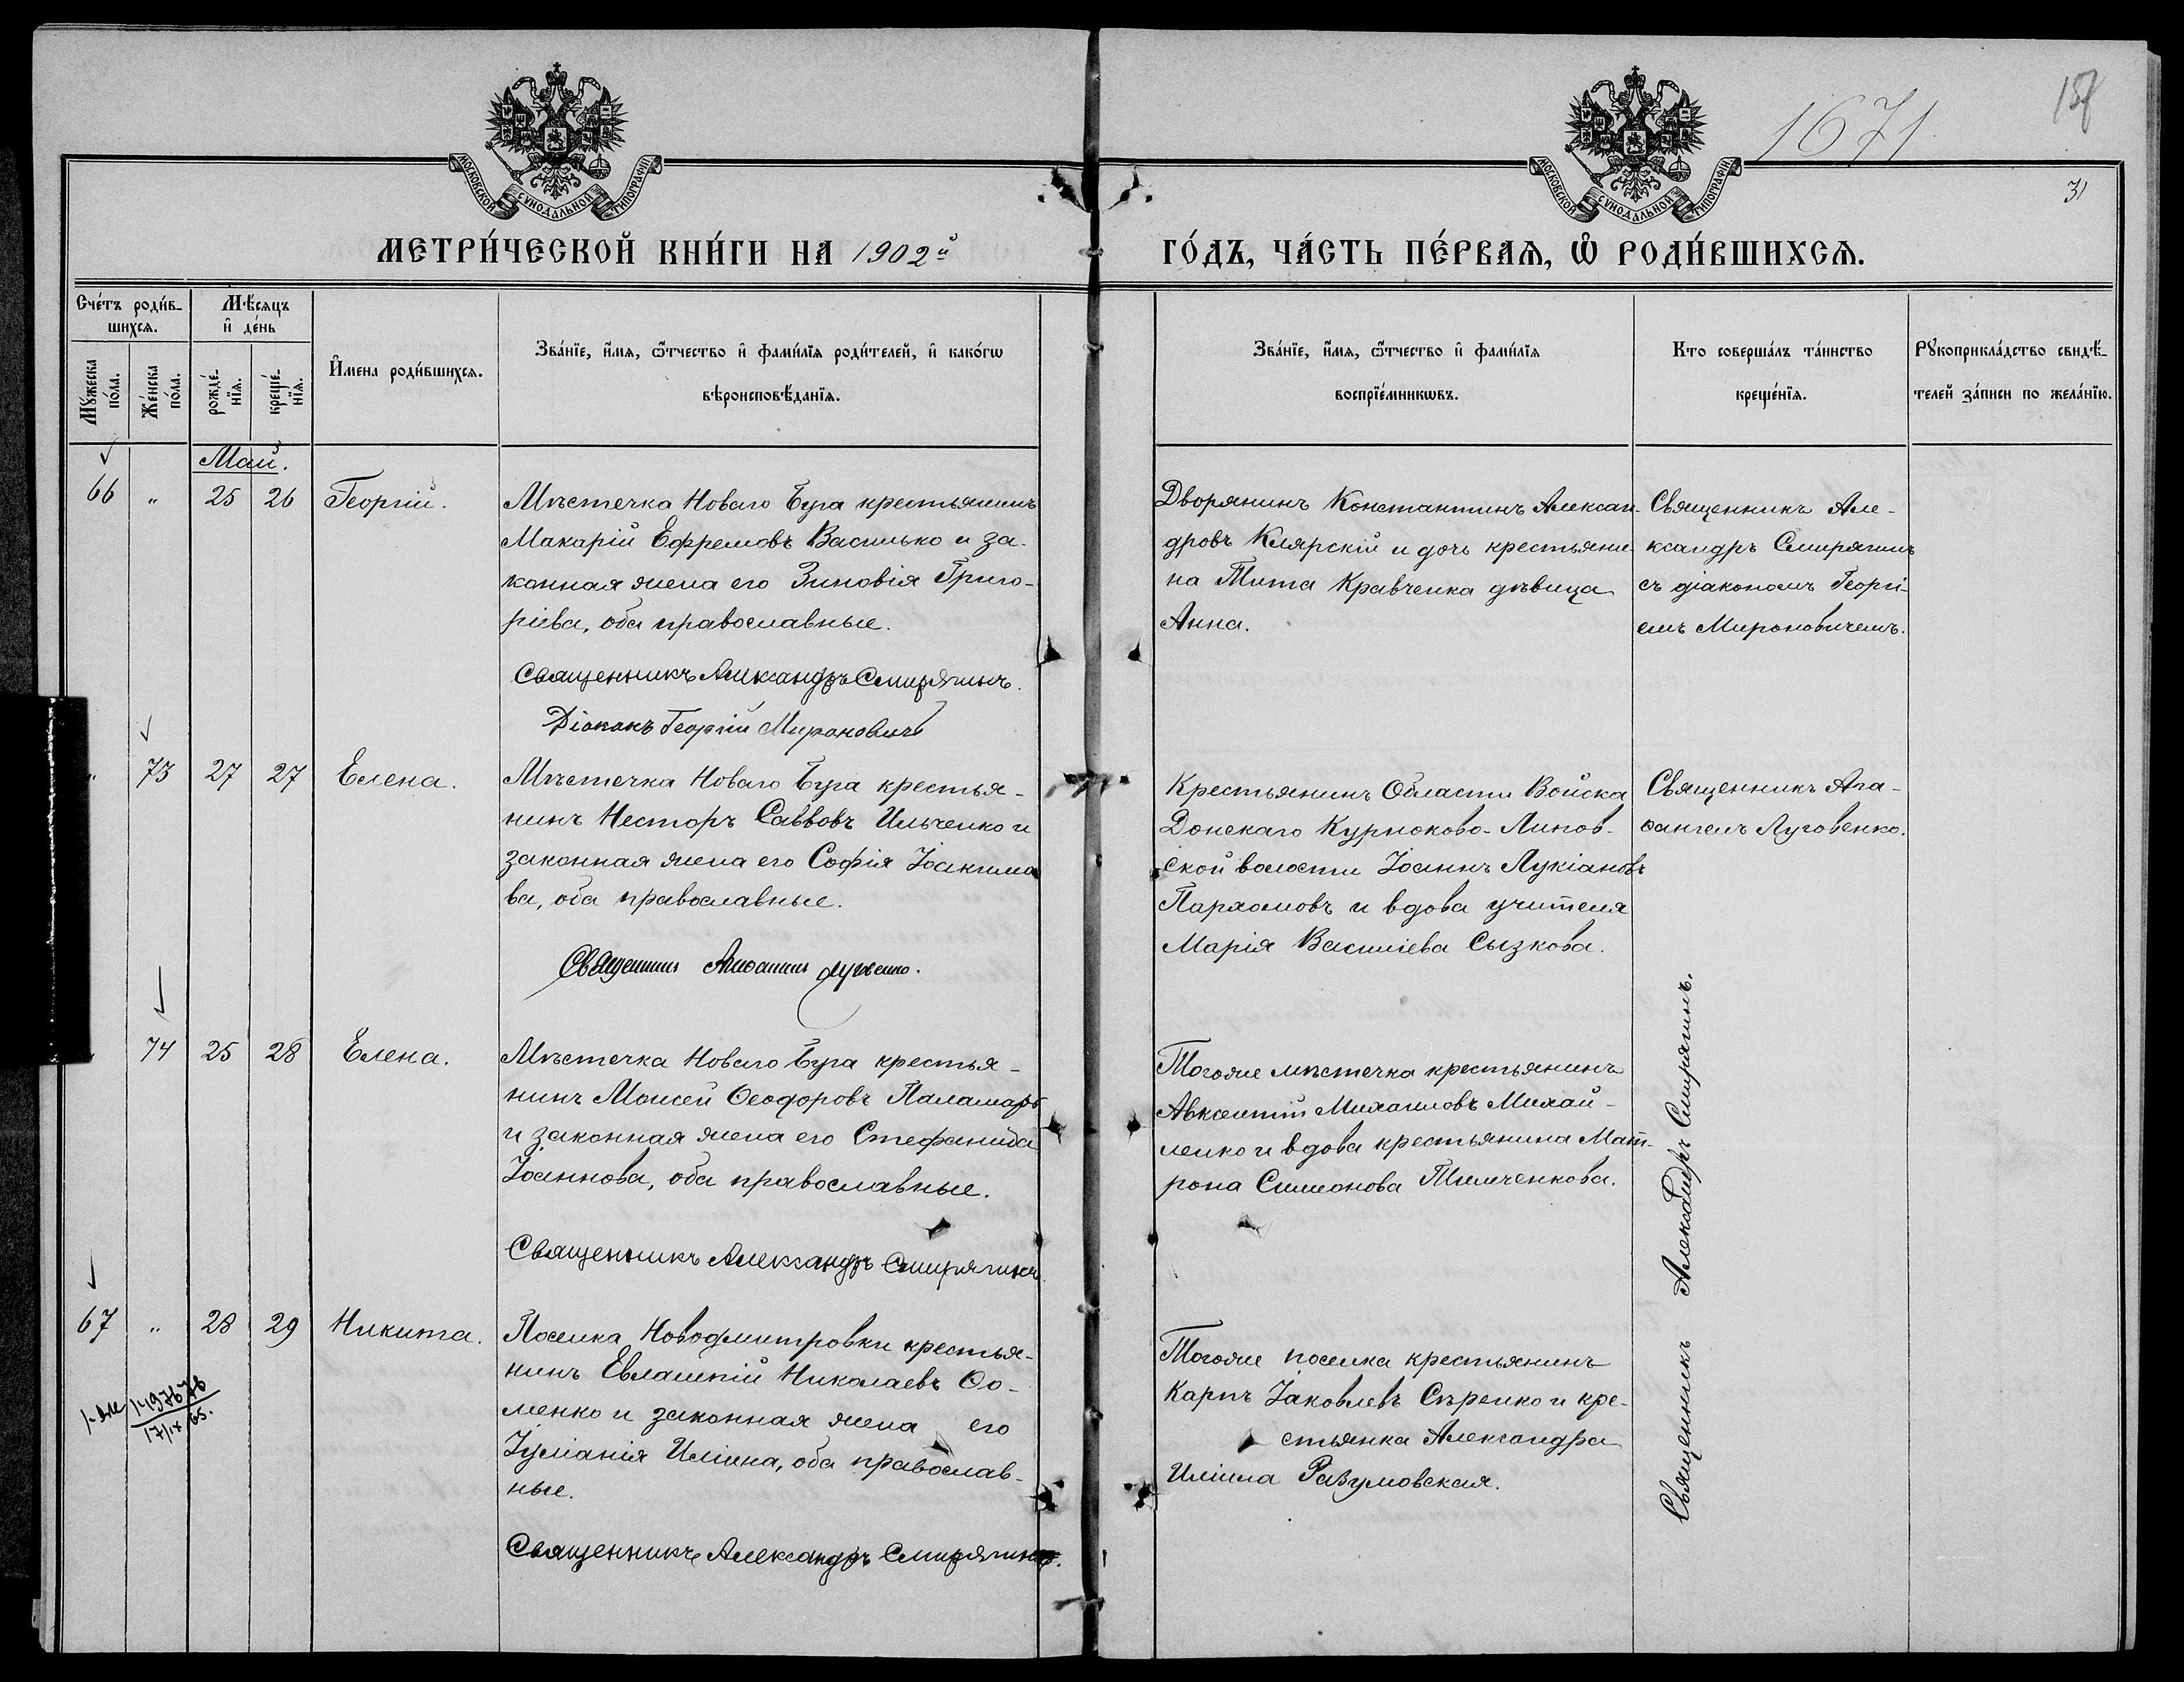 1671
157
31
МОСКОВСКОЙ СУНОДАЛЬНОЙ ТИПОГРАФІИ
МОСКОВСКОЙ СУНОДАЛЬНОЙ ТИПОГРАФІИ
МЕТРИ́ЧЕСКОЙ КНИ́ГИ НА 1902й
ГО́ДЪ, ЧА́СТЬ ПЕ́РВАѦ, Ѡ҆ РОДИ́ВШИХСѦ.
Сче́тъ роди́в-
шихсѧ.
Мꙋ́жеска по́ла.
Же́нска по́ла.
Мѣ́сѧцъ
и҆ де́нь
рожде́нїѧ.
креще́нїѧ.
И҆мена роди́вшихсѧ.
Зва́нїе, и҆́мѧ, ѻ҆́тчество и҆ фами́лїѧ роди́телей, и҆ како́гѡ
вѣроисповѣ́данїѧ.
Зва́нїе, и҆́мѧ, ѻ҆́тчество и҆ фами́лїѧ
воспрїе́мникѡвъ.
Кто соверша́лъ та́инство
креще́нїѧ.
Рꙋкоприкла́дство свидѣ́-
телей за́писи по жела́нїю.
Май.
66 " 25 26 Георгій.
Мѣстечка Новаго Буга крестьянинъ
Макарій Ефремовъ Василько и за-
конная жена его Зиновія Григо-
ріева, оба православные.
Священникъ Александръ Смирягинъ.
Діаконъ Георгій Мироновичъ
Дворянинъ Константинъ Алексан-
дровъ Клярскій и дочь крестьяни-
на Тита Кравченка дѣвица
Анна.
Священникъ Але-
ксандръ Смирягинъ
съ діакономъ Георгі-
емъ Мироновичемъ.
" 73 27 27 Елена.
Мѣстечка Новаго Буга крестья-
нинъ Несторъ Саввовъ Ильченко и
законная жена его Софія Іоакимо
ва, оба православные.
Священникъ Агаѳангелъ Луговенко.
Крестьянинъ Области Войска
Донскаго Курноково-Липов-
ской волости Іоаннъ Лукіановъ
Пархомовъ и вдова учителя
Марія Василіева Сызкова.
Священникъ Ага-
ѳангелъ Луговенко.
74 25 28 Елена.
Мѣстечка Новаго Буга крестья-
нинъ Моисей Ѳеодоровъ Паламарь
и законная жена его Стефанида
Іоаннова, оба православные.
Священникъ Александръ Смирягинъ
Тогоже мѣстечка крестьянинъ
Авксентій Михаиловъ Михай-
ленко и вдова крестьянина Мат-
рона Симеонова Тимченкова.
Священникъ Александръ Смирягинъ.
67 " 28 29 Никита.
17/IX 65.
Поселка Новодмитровки крестья-
нинъ Евлампій Николаевъ Ѳо-
менко и законная жена его
Іуліанія Иліина, оба православ-
ные.
Священникъ Александръ Смирягинъ.
Тогоже поселка крестьянинъ
Карпъ Іаковлевъ Сѣренко и кре-
стьянка Александра
Иліина Разумовская.